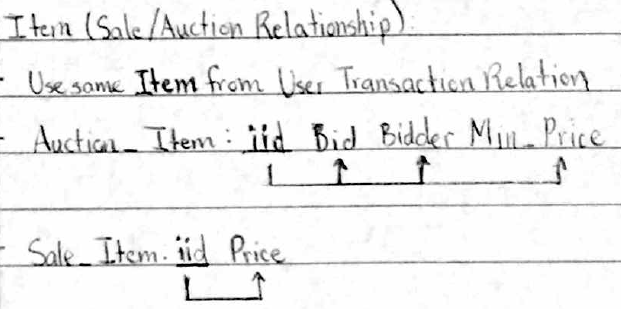 Item (Sale/Auction Relationship):
- Use same Item from User Transaction Relation
- Auction_Item: iid Bid Bidder Min_Price
- Sale_Item: iid Price